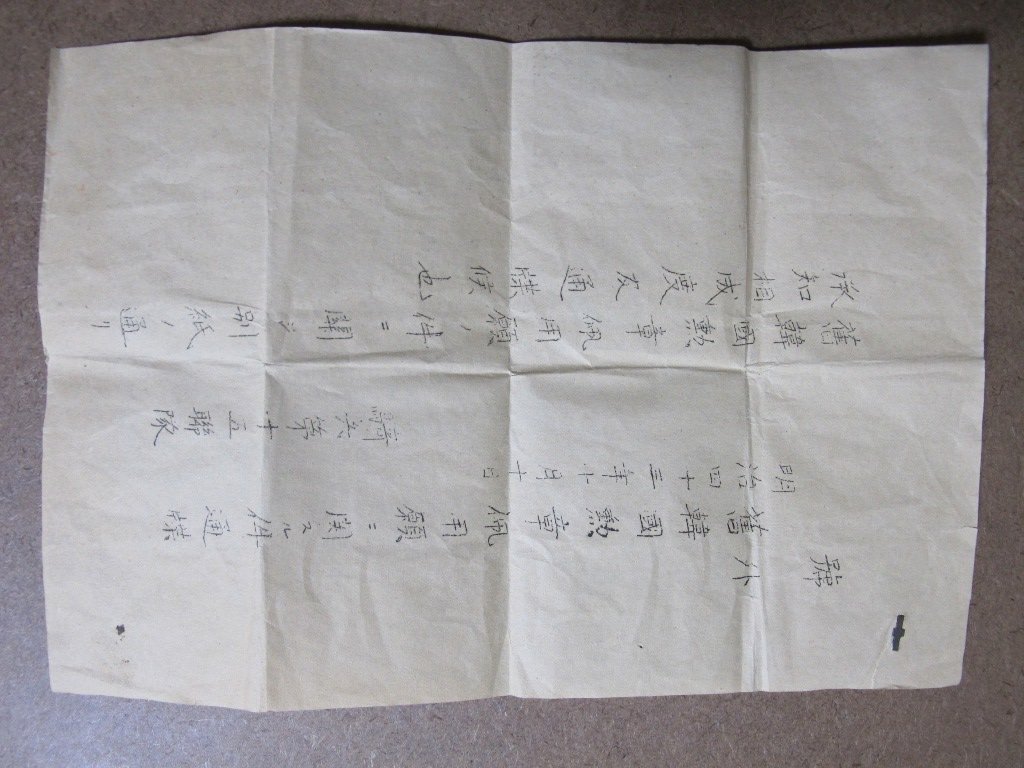 號外
舊韓國勲章佩用願ニ関スル件通牒
明治四十三年十月十日
騎兵第十五聯隊
舊韓國勲章佩用願ノ件ニ関シ別紙ノ通リ
承知相成度及通牒候也